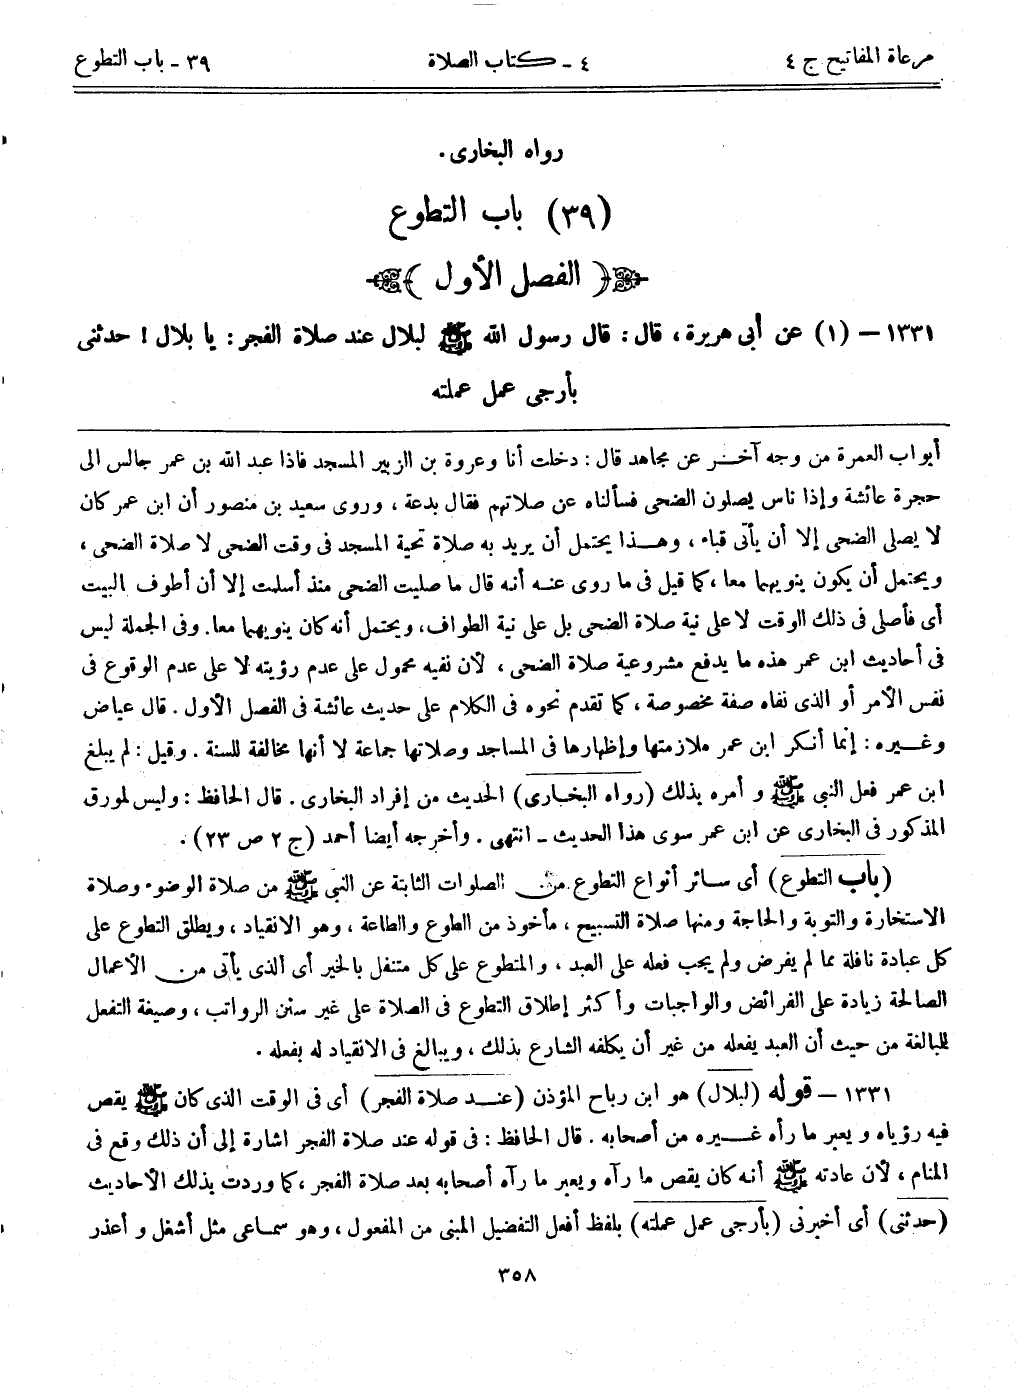 مرعاة المفاتيح ج ٤
٤ ـ كتاب الصلاة
٣٩ ـ باب التطوع
رواه البخارى.
(٣٩) باب التطوع
﴿ الفصل الأول ﴾
١٣٣١ – (١) عن أبى هريرة، قال: قال رسول الله ﷺ لبلال عند صلاة الفجر: يا بلال! حدثنى
بأرجى عمل عملته
أبواب العمرة من وجه آخر عن مجاهد قال: دخلت أنا وعروة بن الزبير المسجد فاذا عبد الله بن عمر جالس الى
حجرة عائشة وإذا ناس يصلون الضحى فسألناه عن صلاتهم فقال بدعة، وروى سعيد بن منصور أن ابن عمر كان
لا يصلى الضحى إلا أن يأتى قباء، وهذا يحتمل أن يريد به صلاة تحية المسجد فى وقت الضحى لا صلاة الضحى،
ويحتمل أن يكون ينويهما معا، كما قيل فى ما روى عنه أنه قال ما صليت الضحى منذ أسلمت إلا أن أطوف البيت
أى فأصلى فى ذلك الوقت لا على نية صلاة الضحى بل على نية الطواف، ويحتمل أنه كان ينويهما معا. وفى الجملة ليس
فى أحاديث ابن عمر هذه ما يدفع مشروعية صلاة الضحى، لأن نفيه محمول على عدم رؤيته لا على عدم الوقوع فى
نفس الأمر أو الذى نفاه صفة مخصوصة، كما تقدم نحوه فى الكلام على حديث عائشة فى الفصل الأول. قال عياض
وغيره: إنما أنكر ابن عمر ملازمتها وإظهارها فى المساجد وصلاتها جماعة لا أنها مخالفة للسنة. وقيل: لم يبلغ
ابن عمر فعل النبى ﷺ و أمره بذلك (رواه البخارى) الحديث من إفراد البخارى. قال الحافظ: وليس لمورق
المذكور فى البخارى عن ابن عمر سوى هذا الحديث ـ انتهى. وأخرجه أيضا أحمد (ج ٢ ص ٢٣).
(باب التطوع) أى سائر أنواع التطوع من الصلوات الثابتة عن النبى ﷺ من صلاة الوضوء وصلاة
الاستخارة والتوبة والحاجة ومنها صلاة التسبيح، مأخوذ من الطوع والطاعة، وهو الانقياد، ويطلق التطوع على
كل عبادة نافلة مما لم يفرض ولم يجب فعله على العبد، والمتطوع على كل متنفل بالخير أى الذى يأتى من الأعمال
الصالحة زيادة على الفرائض والواجبات وأكثر إطلاق التطوع فى الصلاة على غير سنن الرواتب، وصيغة التفعل
للبالغة من حيث أن العبد يفعله من غير أن يكلفه الشارع بذلك، ويبالغ فى الانقياد له بفعله.
١٣٣١ – قوله (لبلال) هو ابن رباح المؤذن (عند صلاة الفجر) أى فى الوقت الذى كان ﷺ يقص
فيه رؤياه و يعبر ما رأه غيره من أصحابه. قال الحافظ: فى قوله عند صلاة الفجر اشارة إلى أن ذلك وقع فى
المنام، لأن عادته ﷺ أنه كان يقص ما رآه ويعبر ما رآه أصحابه بعد صلاة الفجر، كما وردت بذلك الأحاديث
(حدثنى) أى أخبرنى (بأرجى عمل عملته) بلفظ أفعل التفضيل المبنى من المفعول، وهو سماعى مثل أشغل و أعذر
٣٥٨